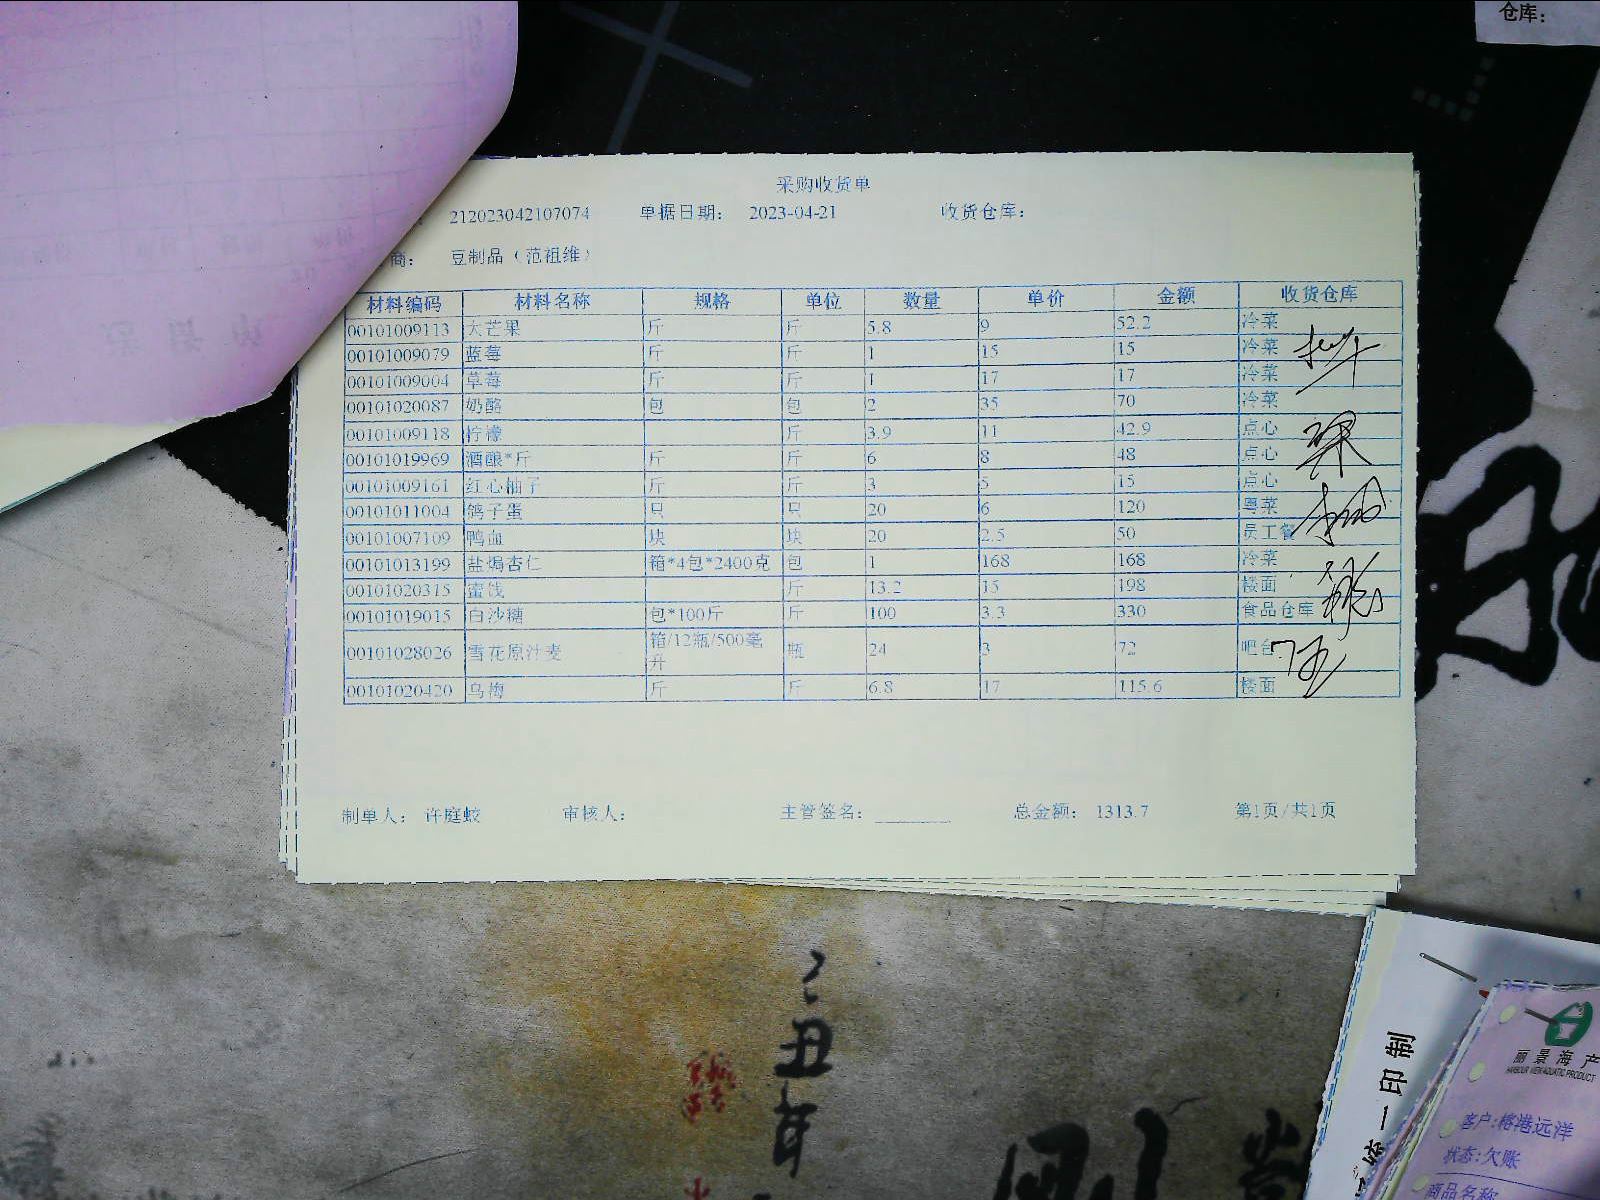 仓库：
采购收货单
212023042107074 单据日期： 2023-04-21 收货仓库：
商： 豆制品（范祖维）
材料编码 材料名称 规格 单位 数量 单价 金额 收货仓库
00101009113 大芒果 斤 斤 5.8 9 52.2 冷菜
00101009079 蓝莓 斤 斤 1 15 15 冷菜
00101009004 草莓 斤 斤 1 17 17 冷菜
00101020087 奶酪 包 包 2 35 70 冷菜
00101009118 柠檬 斤 3.9 11 42.9 点心
00101019969 酒酿*斤 斤 斤 6 8 48 点心
00101009161 红心柚子 斤 斤 3 5 15 点心
00101011004 鸽子蛋 只 只 20 6 120 粤菜
00101007109 鸭血 块 块 20 2.5 50 员工餐
00101013199 盐焗杏仁 箱*4包*2400克 包 1 168 168 冷菜
00101020315 蜜饯 斤 13.2 15 198 楼面
00101019015 白沙糖 包*100斤 斤 100 3.3 330 食品仓库
00101028026 雪花原汁麦 箱/12瓶/500毫升 瓶 24 3 72 吧台
00101020420 乌梅 斤 斤 6.8 17 115.6 楼面
制单人： 许庭蛟 审核人： 主管签名： 总金额： 1313.7 第1页/共1页
丑年
一印制
丽景海产
HARBOUR VIEW AQUATIC PRODUCT
客户:榕港远洋
状态:欠账
商品名称